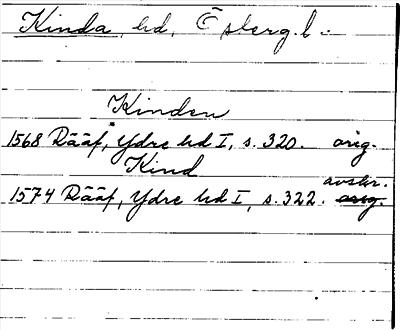 Kinda, hd, Österg.l.:
Kinden
1568 Rääf, Ydre hd I, s. 320. orig.
Kind
avskr.
1574 Rääf, Ydre hd I, s. 322. orig.